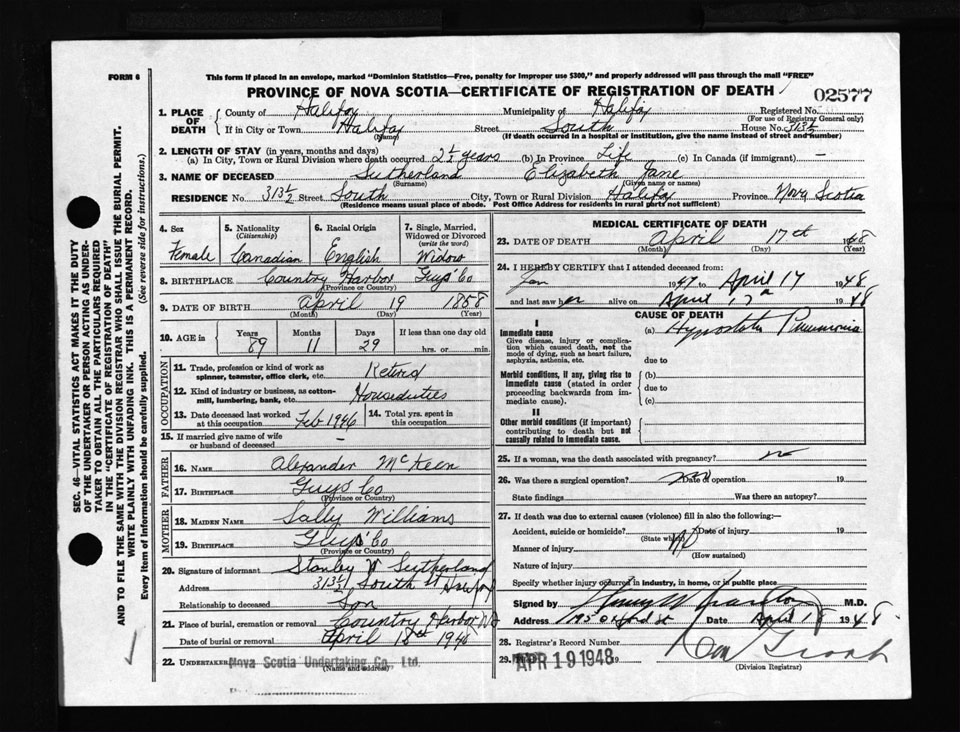 FORM 6
This form if placed in an envelope, marked "Dominion Statistics—Free, penalty for improper use $300," and properly addressed will pass through the mail "FREE"
PROVINCE OF NOVA SCOTIA—CERTIFICATE OF REGISTRATION OF DEATH
02577
SEC. 46—VITAL STATISTICS ACT MAKES IT THE DUTY
OF THE UNDERTAKER OR PERSON ACTING AS UNDER-
TAKER TO OBTAIN ALL THE PARTICULARS REQUIRED
IN THE "CERTIFICATE OF REGISTRATION OF DEATH"
AND TO FILE THE SAME WITH THE DIVISION REGISTRAR WHO SHALL ISSUE THE BURIAL PERMIT.
WRITE PLAINLY WITH UNFADING INK. THIS IS A PERMANENT RECORD.
Every item of Information should be carefully supplied. (See reverse side for instructions.)
1. PLACE OF DEATH County of Halifax Municipality of Halifax Registered No.
(For use of Registrar General only)
If in City or Town Halifax Street South House No. 313½
(Name) (If death occurred in a hospital or institution, give the name instead of street and number)
2. LENGTH OF STAY (in years, months and days)
(a) In City, Town or Rural Division where death occurred 2½ years (b) In Province Life (c) In Canada (if immigrant) —
3. NAME OF DECEASED Sutherland Elizabeth Jane
(Surname) (Given name or names)
RESIDENCE No. 313½ Street South City, Town or Rural Division Halifax Province Nova Scotia
(Residence means usual place of abode. Post Office Address for residents in rural parts not sufficient)
4. Sex 5. Nationality (Citizenship) 6. Racial Origin 7. Single, Married, Widowed or Divorced (write the word)
Female Canadian English Widow
8. BIRTHPLACE Country Harbor Guys' Co
(Province or Country)
9. DATE OF BIRTH April 19 1858
(Month) (Day) (Year)
10. AGE in Years Months Days If less than one day old
89 11 29 hrs. or min.
OCCUPATION
11. Trade, profession or kind of work as spinner, teamster, office clerk, etc. Retired
12. Kind of industry or business, as cotton-mill, lumbering, bank, etc. Houseduties
13. Date deceased last worked at this occupation Feb 1946 14. Total yrs. spent in this occupation
15. If married give name of wife or husband of deceased —
FATHER
16. NAME Alexander McKeen
17. BIRTHPLACE Guys Co
(Province or Country)
MOTHER
18. MAIDEN NAME Sally Williams
19. BIRTHPLACE Guys' Co
(Province or Country)
20. Signature of informant Stanley W Sutherland
Address 313½ South St Halifax
Relationship to deceased Son
21. Place of burial, cremation or removal Country Harbor NS
Date of burial or removal April 18th 1948
22. UNDERTAKER Nova Scotia Undertaking Co., Ltd.
(Name and address)
MEDICAL CERTIFICATE OF DEATH
23. DATE OF DEATH April 17th 1948
(Month) (Day) (Year)
24. I HEREBY CERTIFY that I attended deceased from:
Jan 1947 to April 17 1948
and last saw her alive on April 17th 1948
CAUSE OF DEATH
I
Immediate cause (a) Hypostatic Pneumonia
Give disease, injury or complication which caused death, not the mode of dying, such as heart failure, asphyxia, asthenia, etc.
due to
Morbid conditions, if any, giving rise to immediate cause (stated in order proceeding backwards from immediate cause).
(b)
due to
(c)
II
Other morbid conditions (if important) contributing to death but not causally related to immediate cause.
25. If a woman, was the death associated with pregnancy? no
26. Was there a surgical operation? no Date of operation 19
State findings Was there an autopsy?
27. If death was due to external causes (violence) fill in also the following:—
Accident, suicide or homicide? Date of injury 19
(State which)
Manner of injury No
(How sustained)
Nature of injury
Specify whether injury occurred in industry, in home, or in public place
Signed by M.D.
Address 195 Oxford St Date April 18 1948
28. Registrar's Record Number
29. APR 19 1948 19
(Division Registrar)